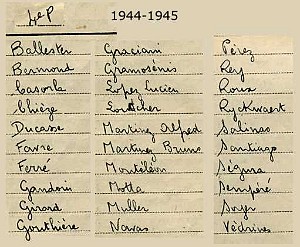 4eP 1944-1945
Ballester
Bermond
Casorla
Chièze
Ducasse
Favre
Ferré
Gandoin
Girard
Gouthière
Graciani
Gramosénis
Lopez Lucien
Martinez Alfred
Martinez Bruno
Montéléon
Motta
Muller
Navas
Pérez
Rey
Roux
Ryckwaert
Salinas
Santiago
Ségura
Sempéré
Soyer
Védrines